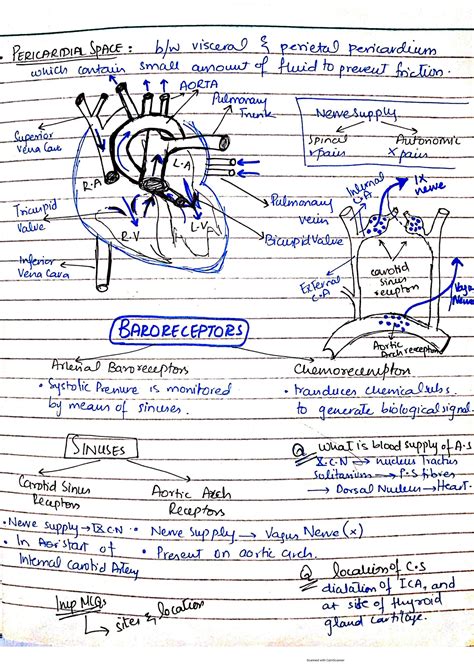 PERICARDIAL SPACE: b/w visceral & perietal pericardium
which contain small amount of fluid to prevent friction.
AORTA
Pulmonary
Trunk
Superior
Vena Cava
R.A
L.A
Tricuspid
Valve
R.V
L.V
Pulmonary
vein
Bicuspid Valve
Inferior
Vena Cava
Nerve supply
Spinal
pain
Autonomic
X pain
Internal
C.A
IX
nerve
External
C.A
carotid
sinus
receptors
Vagus
Nerve
Aortic
Arch receptors
BARORECEPTORS
Arterial Baroreceptors
• Systolic Pressure is monitored
by means of sinuses.
Chemoreceptors
• tranduces chemical subs.
to generate biological signal.
SINUSES
Carotid Sinus
Receptors
Aortic Arch
Receptors
• Nerve supply → IX C.N
• In A at start of
Internal Carotid Artery
• Nerve Supply → Vagus Nerve (X)
• Present on aortic arch.
Q What is blood supply of A.S
C.N → nucleus Tractus
Solitarium → P.S fibres
→ Dorsal Nucleus → Heart.
Q location of C.S
dialation of ICA, and
at site of thyroid
gland cartilage.
Imp MCQs
→ sites & location
Scanned with CamScanner